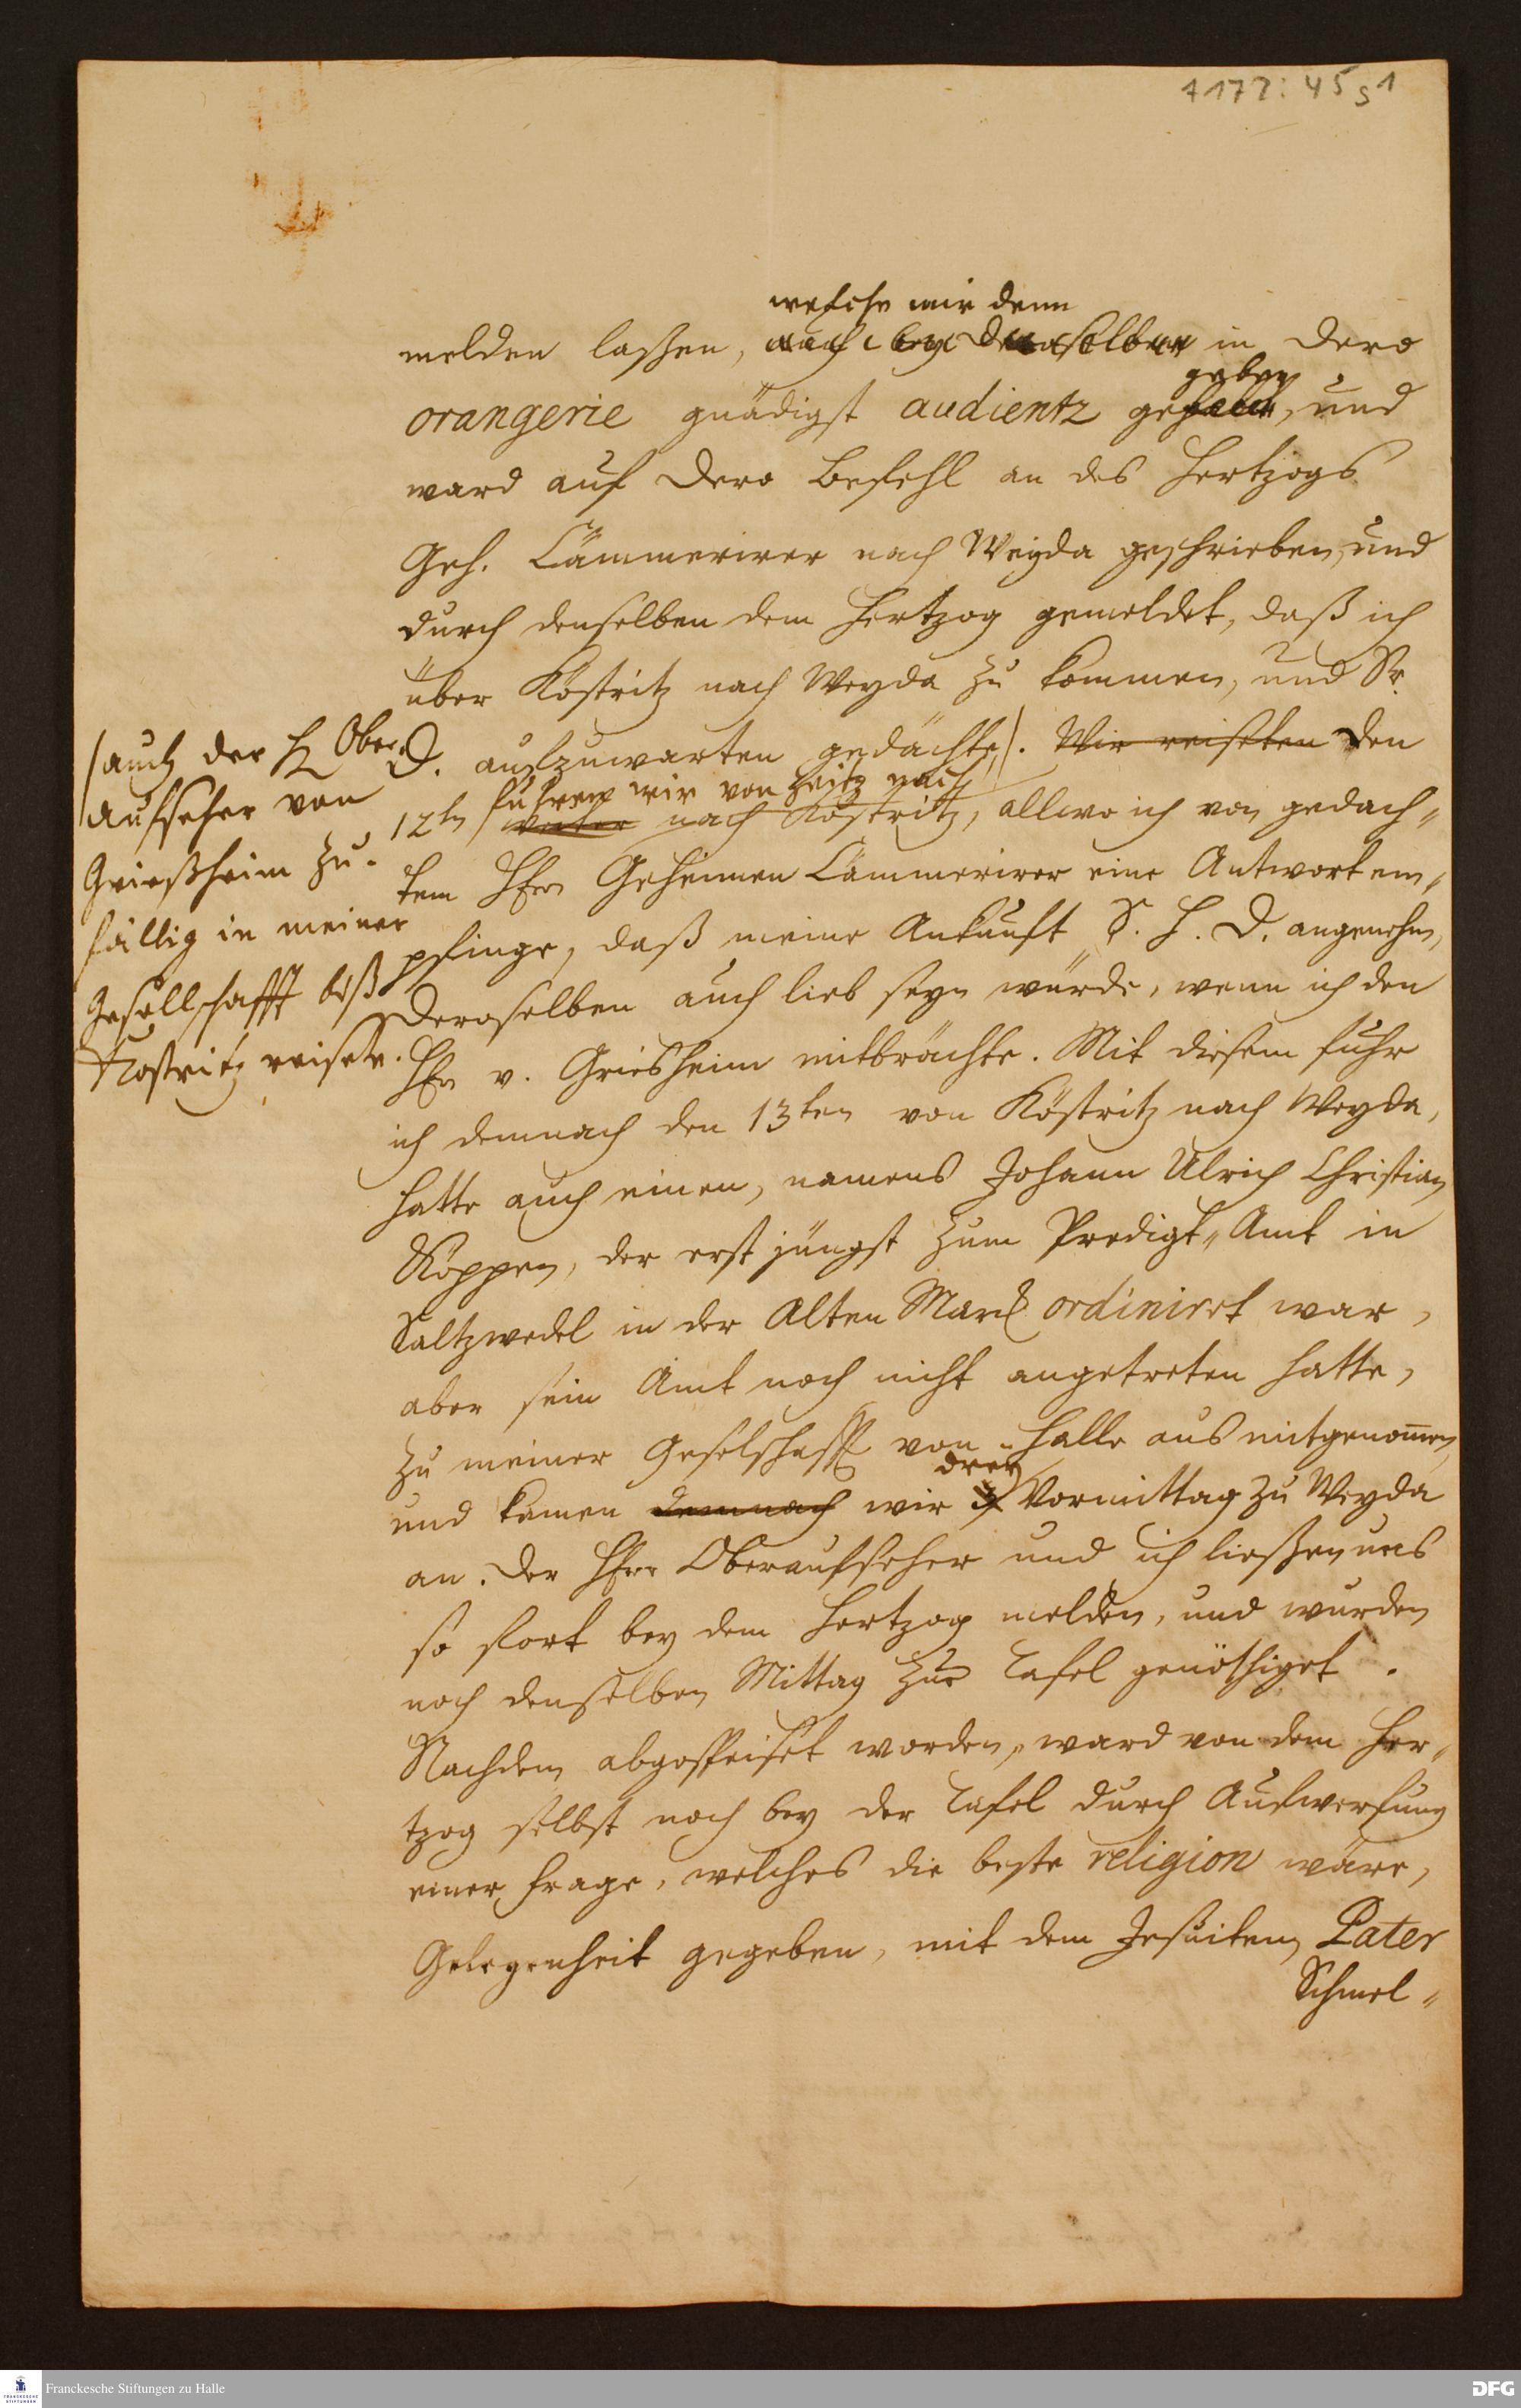 1172: 45 s1
welche mir denn
melden laßen, auch bey denselben in dero
geben
orangerie gnädigst audientz gehabt, und
ward auf dero Befehl an des Hertzogs
Geh. Cämmerirer nach Weyda geschrieben, und
durch denselben dem Hertzog gemeldet, daß ich
über Köstritz nach Weyda zu kommen, und Sr.
D. aufzuwarten gedächte). Wir reiseten den
fuhren wir von Zeitz nach
12ten weiter nach Köstritz, allwo ich von gedach„
tem Hfrn Geheimen Cämmerirer eine Antwort em„
pfinge, daß meine Ankunft S. H. D. angenehm,
Deroselben auch lieb seyn würde, wenn ich den
Hfrn v. Griesheim mitbrächte. Mit diesem fuhr
ich demnach den 13ten von Köstritz nach Weyda,
hatte auch einen, namens Johann Ulrich Christian
Köppen, der erst jüngst zum Predigt„Amt in
Saltzwedel in der Alten Marck ordiniret war,
aber sein Amt noch nicht angetreten hatte,
zu meiner Geselschafft von Halle aus mitgenom̄en,
drey
und kamen demnach wir 3 Vormittag zu Weyda
an. Der Hfrr Oberaufseher und ich ließen uns
so fort bey dem Hertzog melden, und wurden
noch denselben Mittag zur Tafel genöthiget.
Nachdem abgespeiset worden, ward von dem Her„
tzog selbst noch bey der Tafel durch Aufwerfung
einer Frage, welches die beste religion wäre,
Gelegenheit gegeben, mit dem Jesuiten, Pater
Schmel„
/auch der H Ober
Aufseher von
Grießheim zu„
fällig in meiner
Gesellschafft biß
Kostritz reisete.
Franckesche Stiftungen zu Halle
FRANCKESCHE STIFTUNGEN
DFG